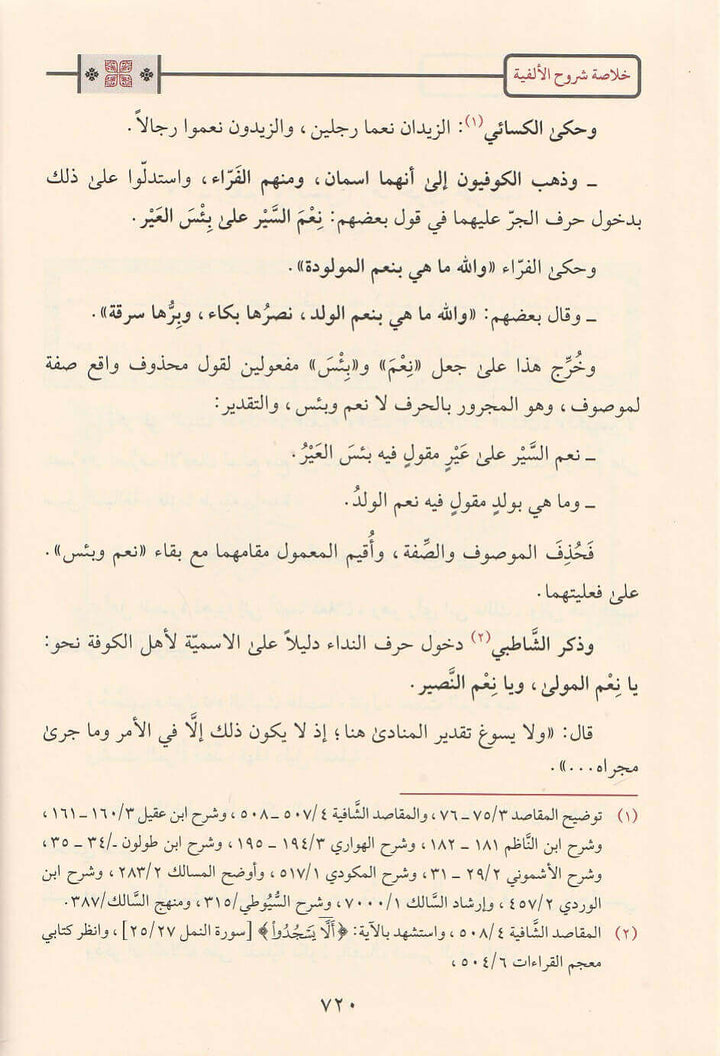 خلاصة شروح الألفية
وحكىٰ الكسائي(١): الزيدان نعما رجلين، والزيدون نعموا رجالاً.
ـ وذهب الكوفيون إلىٰ أنهما اسمان، ومنهم الفَرّاء، واستدلّوا علىٰ ذلك
بدخول حرف الجرّ عليهما في قول بعضهم: نِعْمَ السَّيْر علىٰ بِئْسَ العَيْر.
وحكىٰ الفرّاء «والله ما هي بنعم المولودة».
ـ وقال بعضهم: «والله ما هي بنعم الولد، نصرُها بكاء، وبِرُّها سرقة».
وخُرِّج هذا علىٰ جعل «نِعْمَ» و«بِئْسَ» مفعولين لقول محذوف واقع صفة
لموصوف، وهو المجرور بالحرف لا نعم وبئس، والتقدير:
ـ نعم السَّيْر علىٰ عَيْرٍ مقولٍ فيه بئسَ العَيْرُ.
ـ وما هي بولدٍ مقولٍ فيه نعم الولدُ.
فَحُذِفَ الموصوف والصِّفة، وأُقيم المعمول مقامهما مع بقاء «نعم وبئس».
علىٰ فعليتهما.
وذكر الشَّاطبي(٢) دخول حرف النداء دليلاً علىٰ الاسميّة لأهل الكوفة نحو:
يا نِعْم المولىٰ، ويا نِعْم النَّصير.
قال: «ولا يسوغ تقدير المنادىٰ هنا؛ إذ لا يكون ذلك إلَّا في الأمر وما جرىٰ
مجراه...».
(١) توضيح المقاصد ٧٥/٣ ـ ٧٦، والمقاصد الشَّافية ٥٠٧/٤ ـ ٥٠٨، وشرح ابن عقيل ١٦٠/٣ ـ ١٦١،
وشرح ابن النَّاظم ١٨١ ـ ١٨٢، وشرح الهواري ١٩٤/٣ ـ ١٩٥، وشرح ابن طولون ـ/٣٤ ـ ٣٥،
وشرح الأشموني ٢٩/٢ ـ ٣١، وشرح المكودي ٥١٧/١، وأوضح المسالك ٢٨٣/٢، وشرح ابن
الوردي ٤٥٧/٢، وإرشاد السَّالك ٧٠٠٠/١، وشرح السُّيُوطي/٣١٥، ومنهج السَّالك/٣٨٧.
(٢) المقاصد الشَّافية ٥٠٨/٤، واستشهد بالآية: ﴿أَلَّا يَسْجُدُواْ﴾ [سورة النمل ٢٥/٢٧]، وانظر كتابي
معجم القراءات ٥٠٤/٦،
٧٢٠